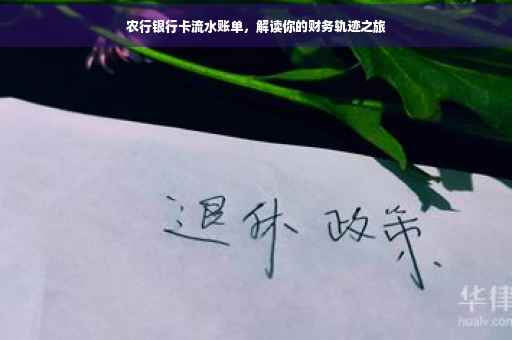 农行银行卡流水账单，解读你的财务轨迹之旅
退休政策
华律
hualv.com